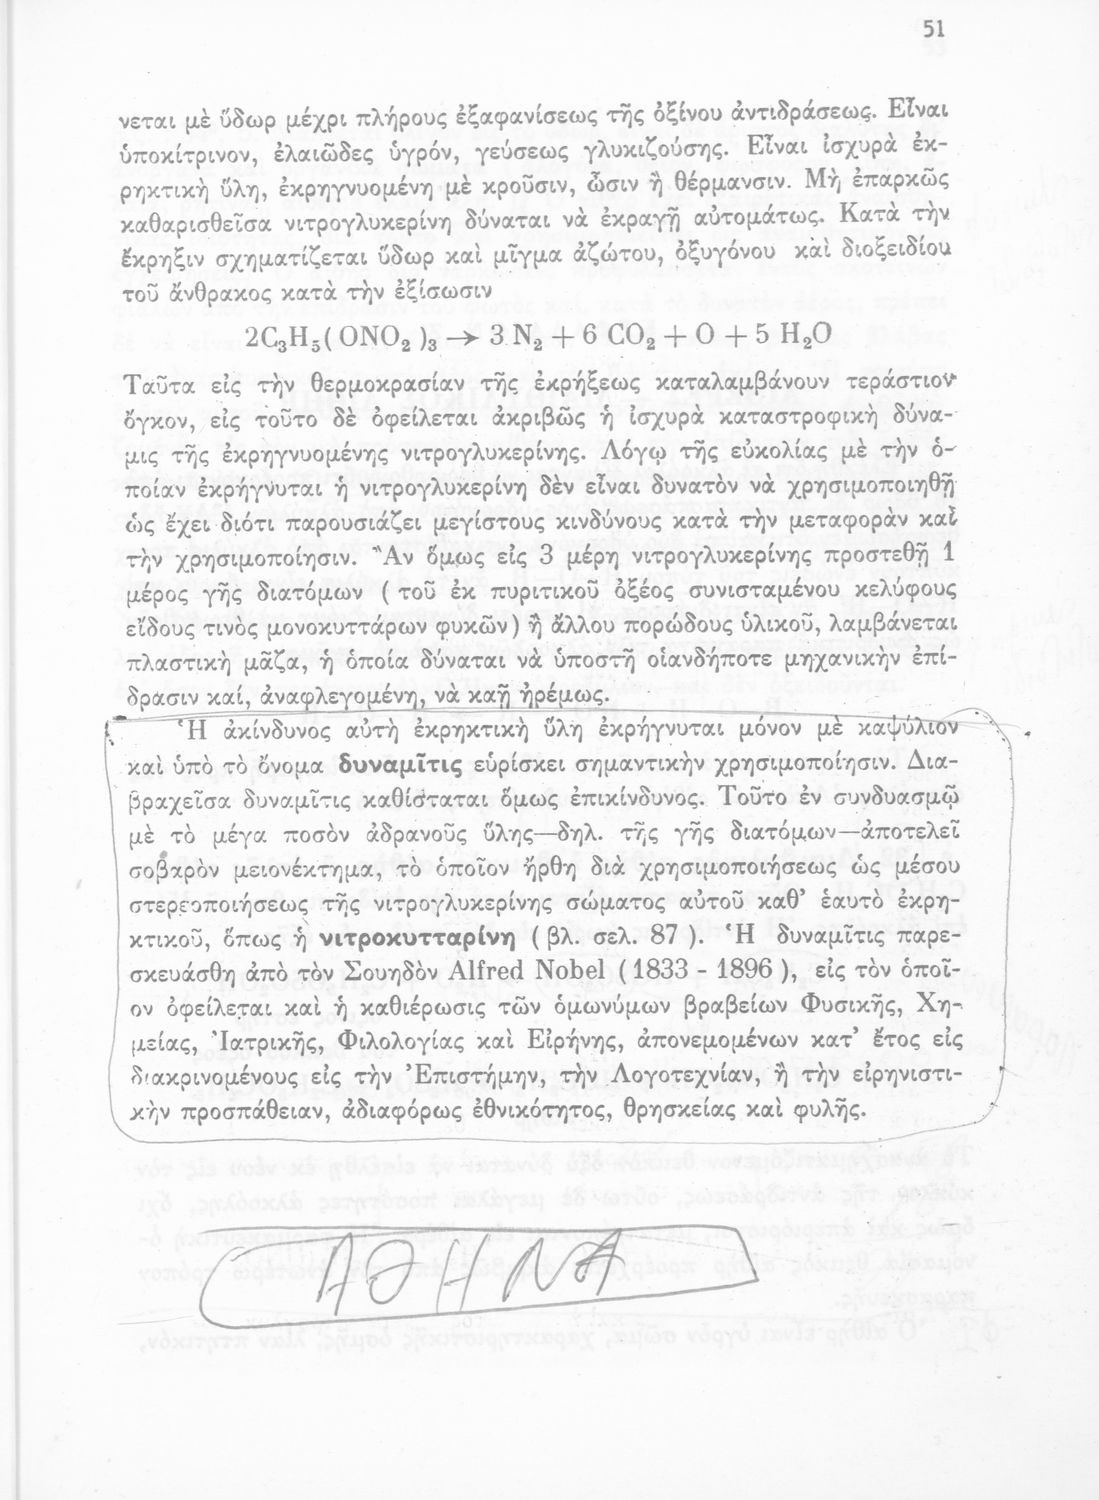 51
νεται μὲ ὕδωρ μέχρι πλήρους ἐξαφανίσεως τῆς ὀξίνου ἀντιδράσεως. Εἶναι
ὑποκίτρινον, ἐλαιῶδες ὑγρόν, γεύσεως γλυκιζούσης. Εἶναι ἰσχυρὰ ἐκ-
ρηκτικὴ ὕλη, ἐκρηγνυομένη μὲ κροῦσιν, ὦσιν ἢ θέρμανσιν. Μὴ ἐπαρκῶς
καθαρισθεῖσα νιτρογλυκερίνη δύναται νὰ ἐκραγῇ αὐτομάτως. Κατὰ τὴν
ἔκρηξιν σχηματίζεται ὕδωρ καὶ μῖγμα ἀζώτου, ὀξυγόνου καὶ διοξειδίου
τοῦ ἄνθρακος κατὰ τὴν ἐξίσωσιν
2C₃H₅( ONO₂ )₃ → 3 N₂ + 6 CO₂ + O + 5 H₂O
Ταῦτα εἰς τὴν θερμοκρασίαν τῆς ἐκρήξεως καταλαμβάνουν τεράστιον
ὄγκον, εἰς τοῦτο δὲ ὀφείλεται ἀκριβῶς ἡ ἰσχυρὰ καταστροφικὴ δύνα-
μις τῆς ἐκρηγνυομένης νιτρογλυκερίνης. Λόγῳ τῆς εὐκολίας μὲ τὴν ὁ-
ποίαν ἐκρήγνυται ἡ νιτρογλυκερίνη δὲν εἶναι δυνατὸν νὰ χρησιμοποιηθῇ
ὡς ἔχει διότι παρουσιάζει μεγίστους κινδύνους κατὰ τὴν μεταφορὰν καὶ
τὴν χρησιμοποίησιν. Ἂν ὅμως εἰς 3 μέρη νιτρογλυκερίνης προστεθῇ 1
μέρος γῆς διατόμων ( τοῦ ἐκ πυριτικοῦ ὀξέος συνισταμένου κελύφους
εἴδους τινὸς μονοκυττάρων φυκῶν) ἢ ἄλλου πορώδους ὑλικοῦ, λαμβάνεται
πλαστικὴ μᾶζα, ἡ ὁποία δύναται νὰ ὑποστῇ οἱανδήποτε μηχανικὴν ἐπί-
δρασιν καί, ἀναφλεγομένη, νὰ καῇ ἠρέμως.
Ἡ ἀκίνδυνος αὐτὴ ἐκρηκτικὴ ὕλη ἐκρήγνυται μόνον μὲ καψύλιον
καὶ ὑπὸ τὸ ὄνομα δυναμῖτις εὑρίσκει σημαντικὴν χρησιμοποίησιν. Δια-
βραχεῖσα δυναμῖτις καθίσταται ὅμως ἐπικίνδυνος. Τοῦτο ἐν συνδυασμῷ
μὲ τὸ μέγα ποσὸν ἀδρανοῦς ὕλης—δηλ. τῆς γῆς διατόμων—ἀποτελεῖ
σοβαρὸν μειονέκτημα, τὸ ὁποῖον ἤρθη διὰ χρησιμοποιήσεως ὡς μέσου
στερεοποιήσεως τῆς νιτρογλυκερίνης σώματος αὐτοῦ καθ’ ἑαυτὸ ἐκρη-
κτικοῦ, ὅπως ἡ νιτροκυτταρίνη ( βλ. σελ. 87 ). Ἡ δυναμῖτις παρε-
σκευάσθη ἀπὸ τὸν Σουηδὸν Alfred Nobel ( 1833 - 1896 ), εἰς τὸν ὁποῖ-
ον ὀφείλεται καὶ ἡ καθιέρωσις τῶν ὁμωνύμων βραβείων Φυσικῆς, Χη-
μείας, Ἰατρικῆς, Φιλολογίας καὶ Εἰρήνης, ἀπονεμομένων κατ’ ἔτος εἰς
διακρινομένους εἰς τὴν Ἐπιστήμην, τὴν Λογοτεχνίαν, ἢ τὴν εἰρηνιστι-
κὴν προσπάθειαν, ἀδιαφόρως ἐθνικότητος, θρησκείας καὶ φυλῆς.
ΑΘΗΝΑ